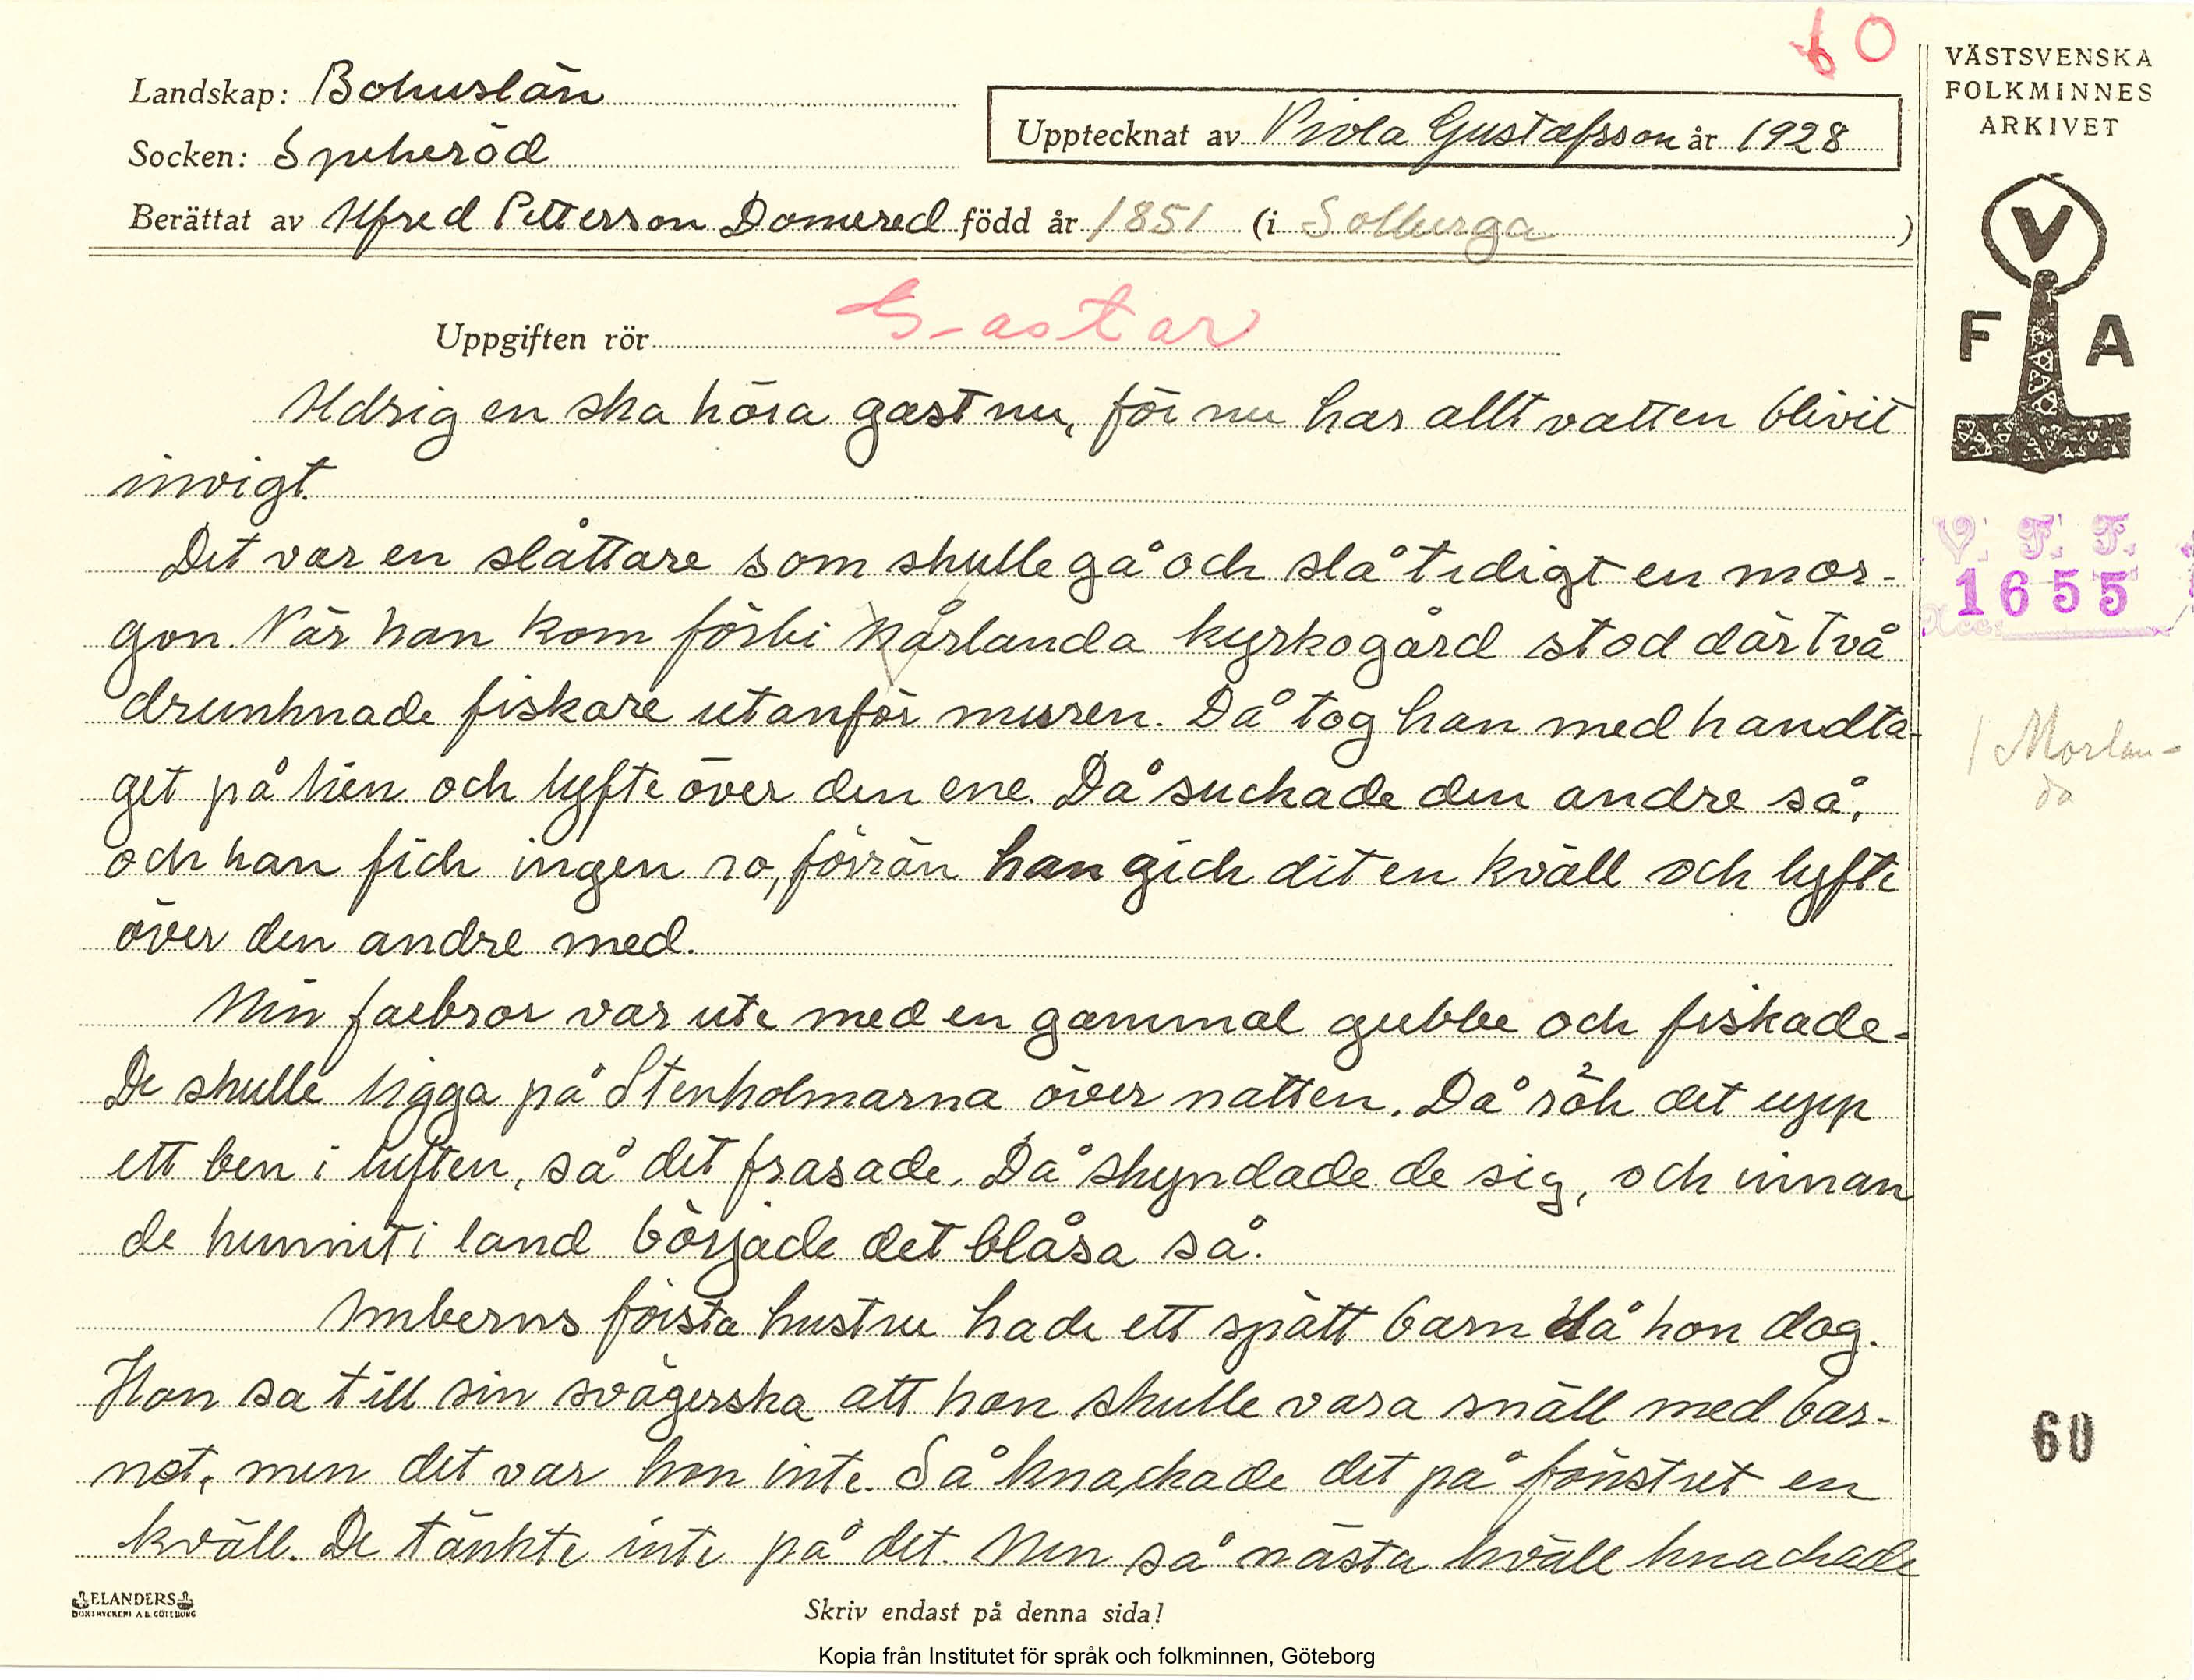 60
Landskap: Bohuslän
Socken: Spekeröd
Upptecknat av Viola Gustafsson år 1928
Berättat av Alfred Petterson Domered född år 1851 (i Solberga)
VÄSTSVENSKA
FOLKMINNES
ARKIVET
V
F A
Uppgiften rör Gastar
Aldrig en ska höra gast nu, för nu har allt vatten blivit
invigt.
Det var en slåttare som skulle gå och slå tidigt en mor-
gon. När han kom förbi Mårlanda kyrkogård stod där två
drunknade fiskare utanför muren. Då tog han med handta-
get på lien och lyfte över den ene. Då suckade den andre så,
och han fick ingen ro, förrän han gick dit en kväll och lyfte
över den andre med.
Min farbror var ute med en gammal gubbe och fiskade.
De skulle ligga på Stenholmarna över natten. Då rök det upp
ett ben i luften, så det frasade. Då skyndade de sig, och innan
de hunnit i land började det blåsa så.
Amberns första hustru hade ett spätt barn då hon dog.
Hon sa till sin svägerska att hon skulle vara snäll med bar-
net, men det var hon inte. Så knackade det på fönstret en
kväll. De tänkte inte på det. Men så nästa kväll knackade
V. F. F.
1655
Acc.
/ Morlan-
da
60
ELANDERS
BOKTRYCKERI A.B. GÖTEBORG
Skriv endast på denna sida!
Kopia från Institutet för språk och folkminnen, Göteborg